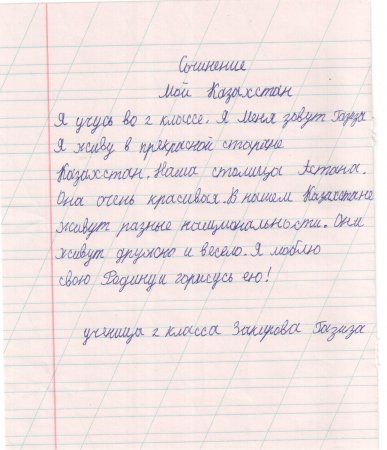 Сочинение
Мой Казахстан
Я учусь во 2 классе. Я Меня зовут Газиза
Я живу в прекрасной стороне
Казахстан. Наша столица Астана.
Она очень красивая. В нашем Казахстане
живут разные национальности. Они
живут дружно и весело. Я люблю
свою Родину и горжусь ею!
ученица 2 класса Закирова Газиза